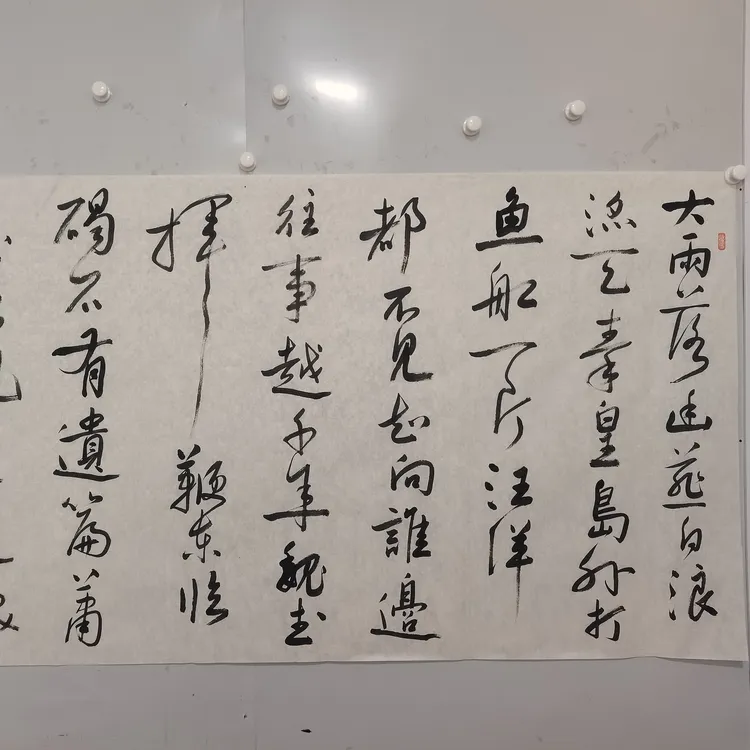 大雨落幽燕白浪
滔天秦皇島外打
魚船一片汪洋
都不見知向誰邊
往事越千年魏武
揮鞭東臨
碣石有遺篇蕭